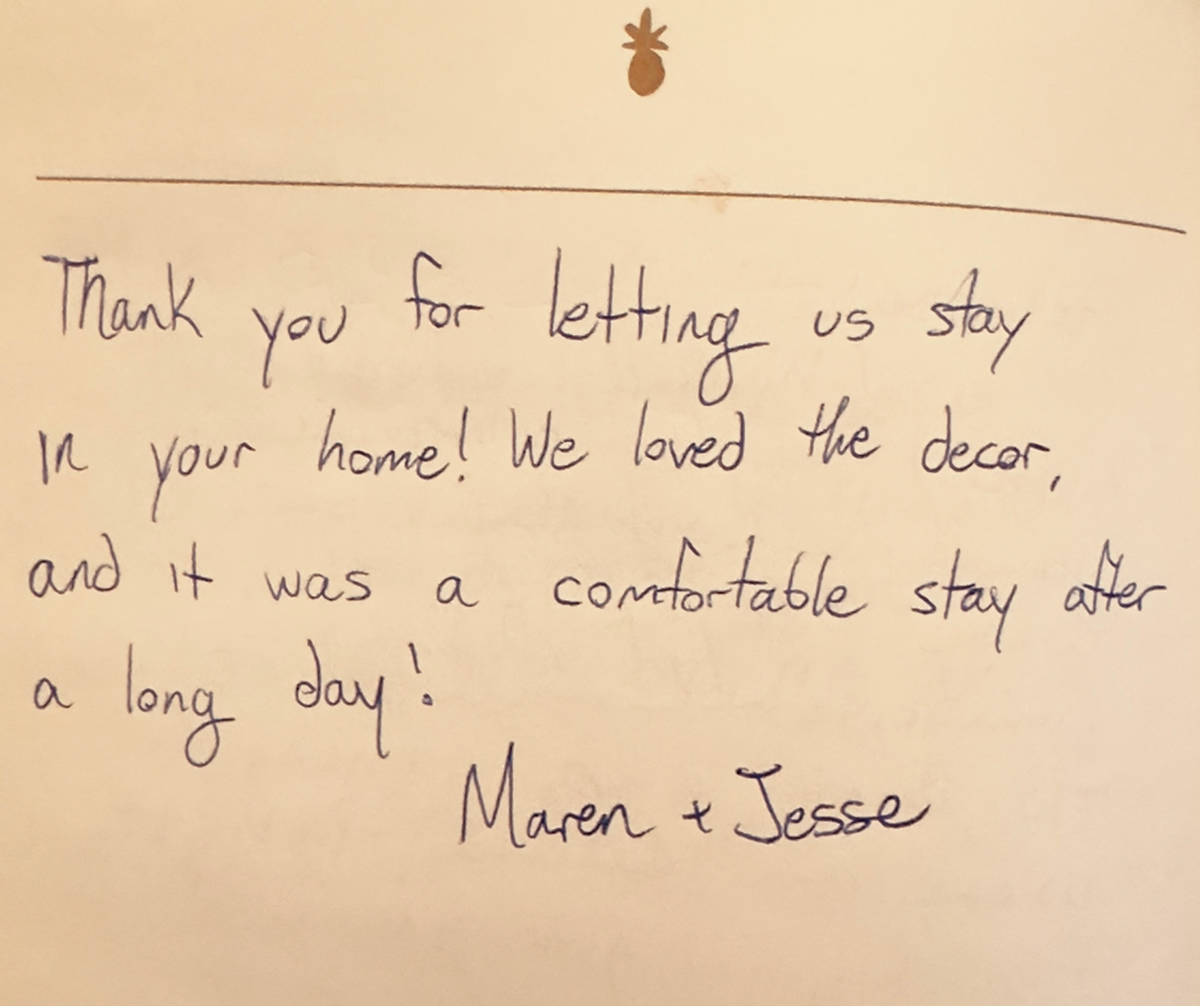 Thank you for letting us stay
in your home! We loved the decor,
and it was a comfortable stay after
a long day!
Maren + Jesse